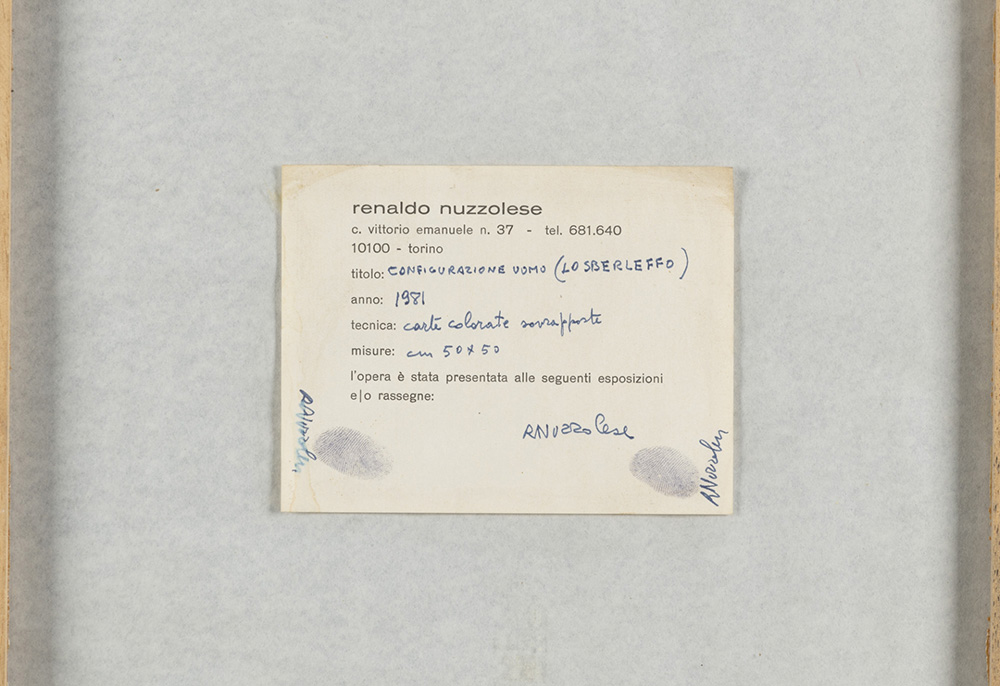 renaldo nuzzolese
c. vittorio emanuele n. 37 - tel. 681.640
10100 - torino
titolo: CONFIGURAZIONE UOMO (LO SBERLEFFO)
anno: 1981
tecnica: carte colorate sovrapposte
misure: cm 50x50
l'opera è stata presentata alle seguenti esposizioni
e|o rassegne:
RNuzzolese
RNuzzolese
RNuzzolese